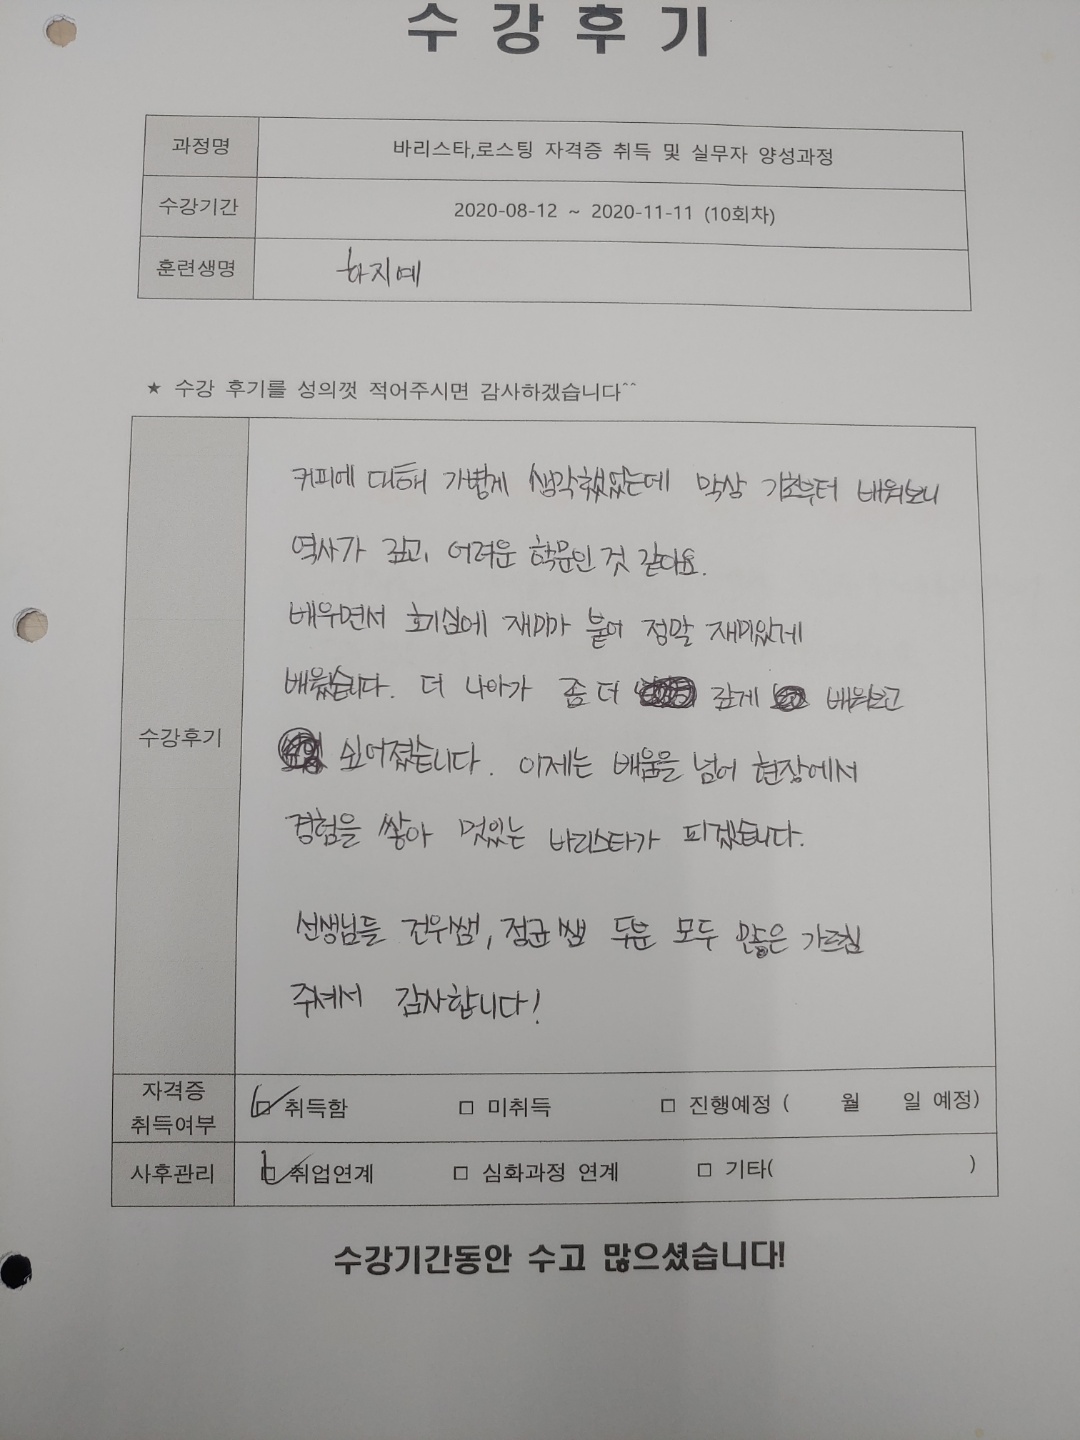 수강후기
과정명 바리스타,로스팅 자격증 취득 및 실무자 양성과정
수강기간 2020-08-12 ~ 2020-11-11 (10회차)
훈련생명 하지예
★ 수강 후기를 성의껏 적어주시면 감사하겠습니다^^
커피에 대해 가볍게 생각했었는데 막상 기초부터 배워보니
역사가 깊고, 어려운 학문인 것 같아요.
배우면서 호기심에 재미가 붙어 정말 재미있게
배웠습니다. 더 나아가 좀 더 깊게 배워보고
수강후기
싶어졌습니다. 이제는 배움을 넘어 현장에서
경험을 쌓아 멋있는 바리스타가 되겠습니다.
선생님들 건우쌤, 정균쌤 두분 모두 많은 가르침
주셔서 감사합니다!
자격증 취득여부 □ 취득함 □ 미취득 □ 진행예정 ( 월 일 예정)
사후관리 □ 취업연계 □ 심화과정 연계 □ 기타( )
수강기간동안 수고 많으셨습니다!